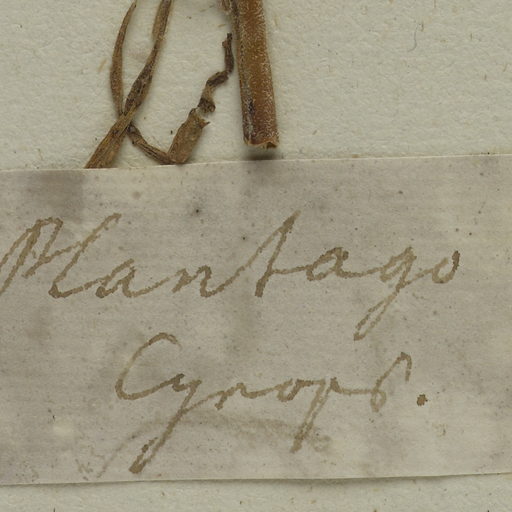 Plantago
Cynops.